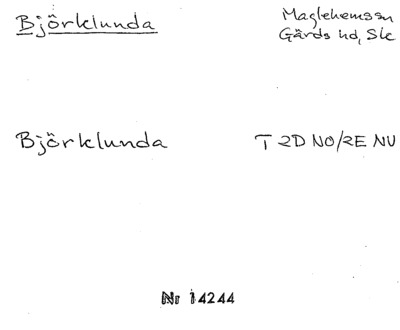 Björklunda
Maglehems sn
Gärds hd, Sk
Björklunda
T 2D NO/2E NV
Nr 14244